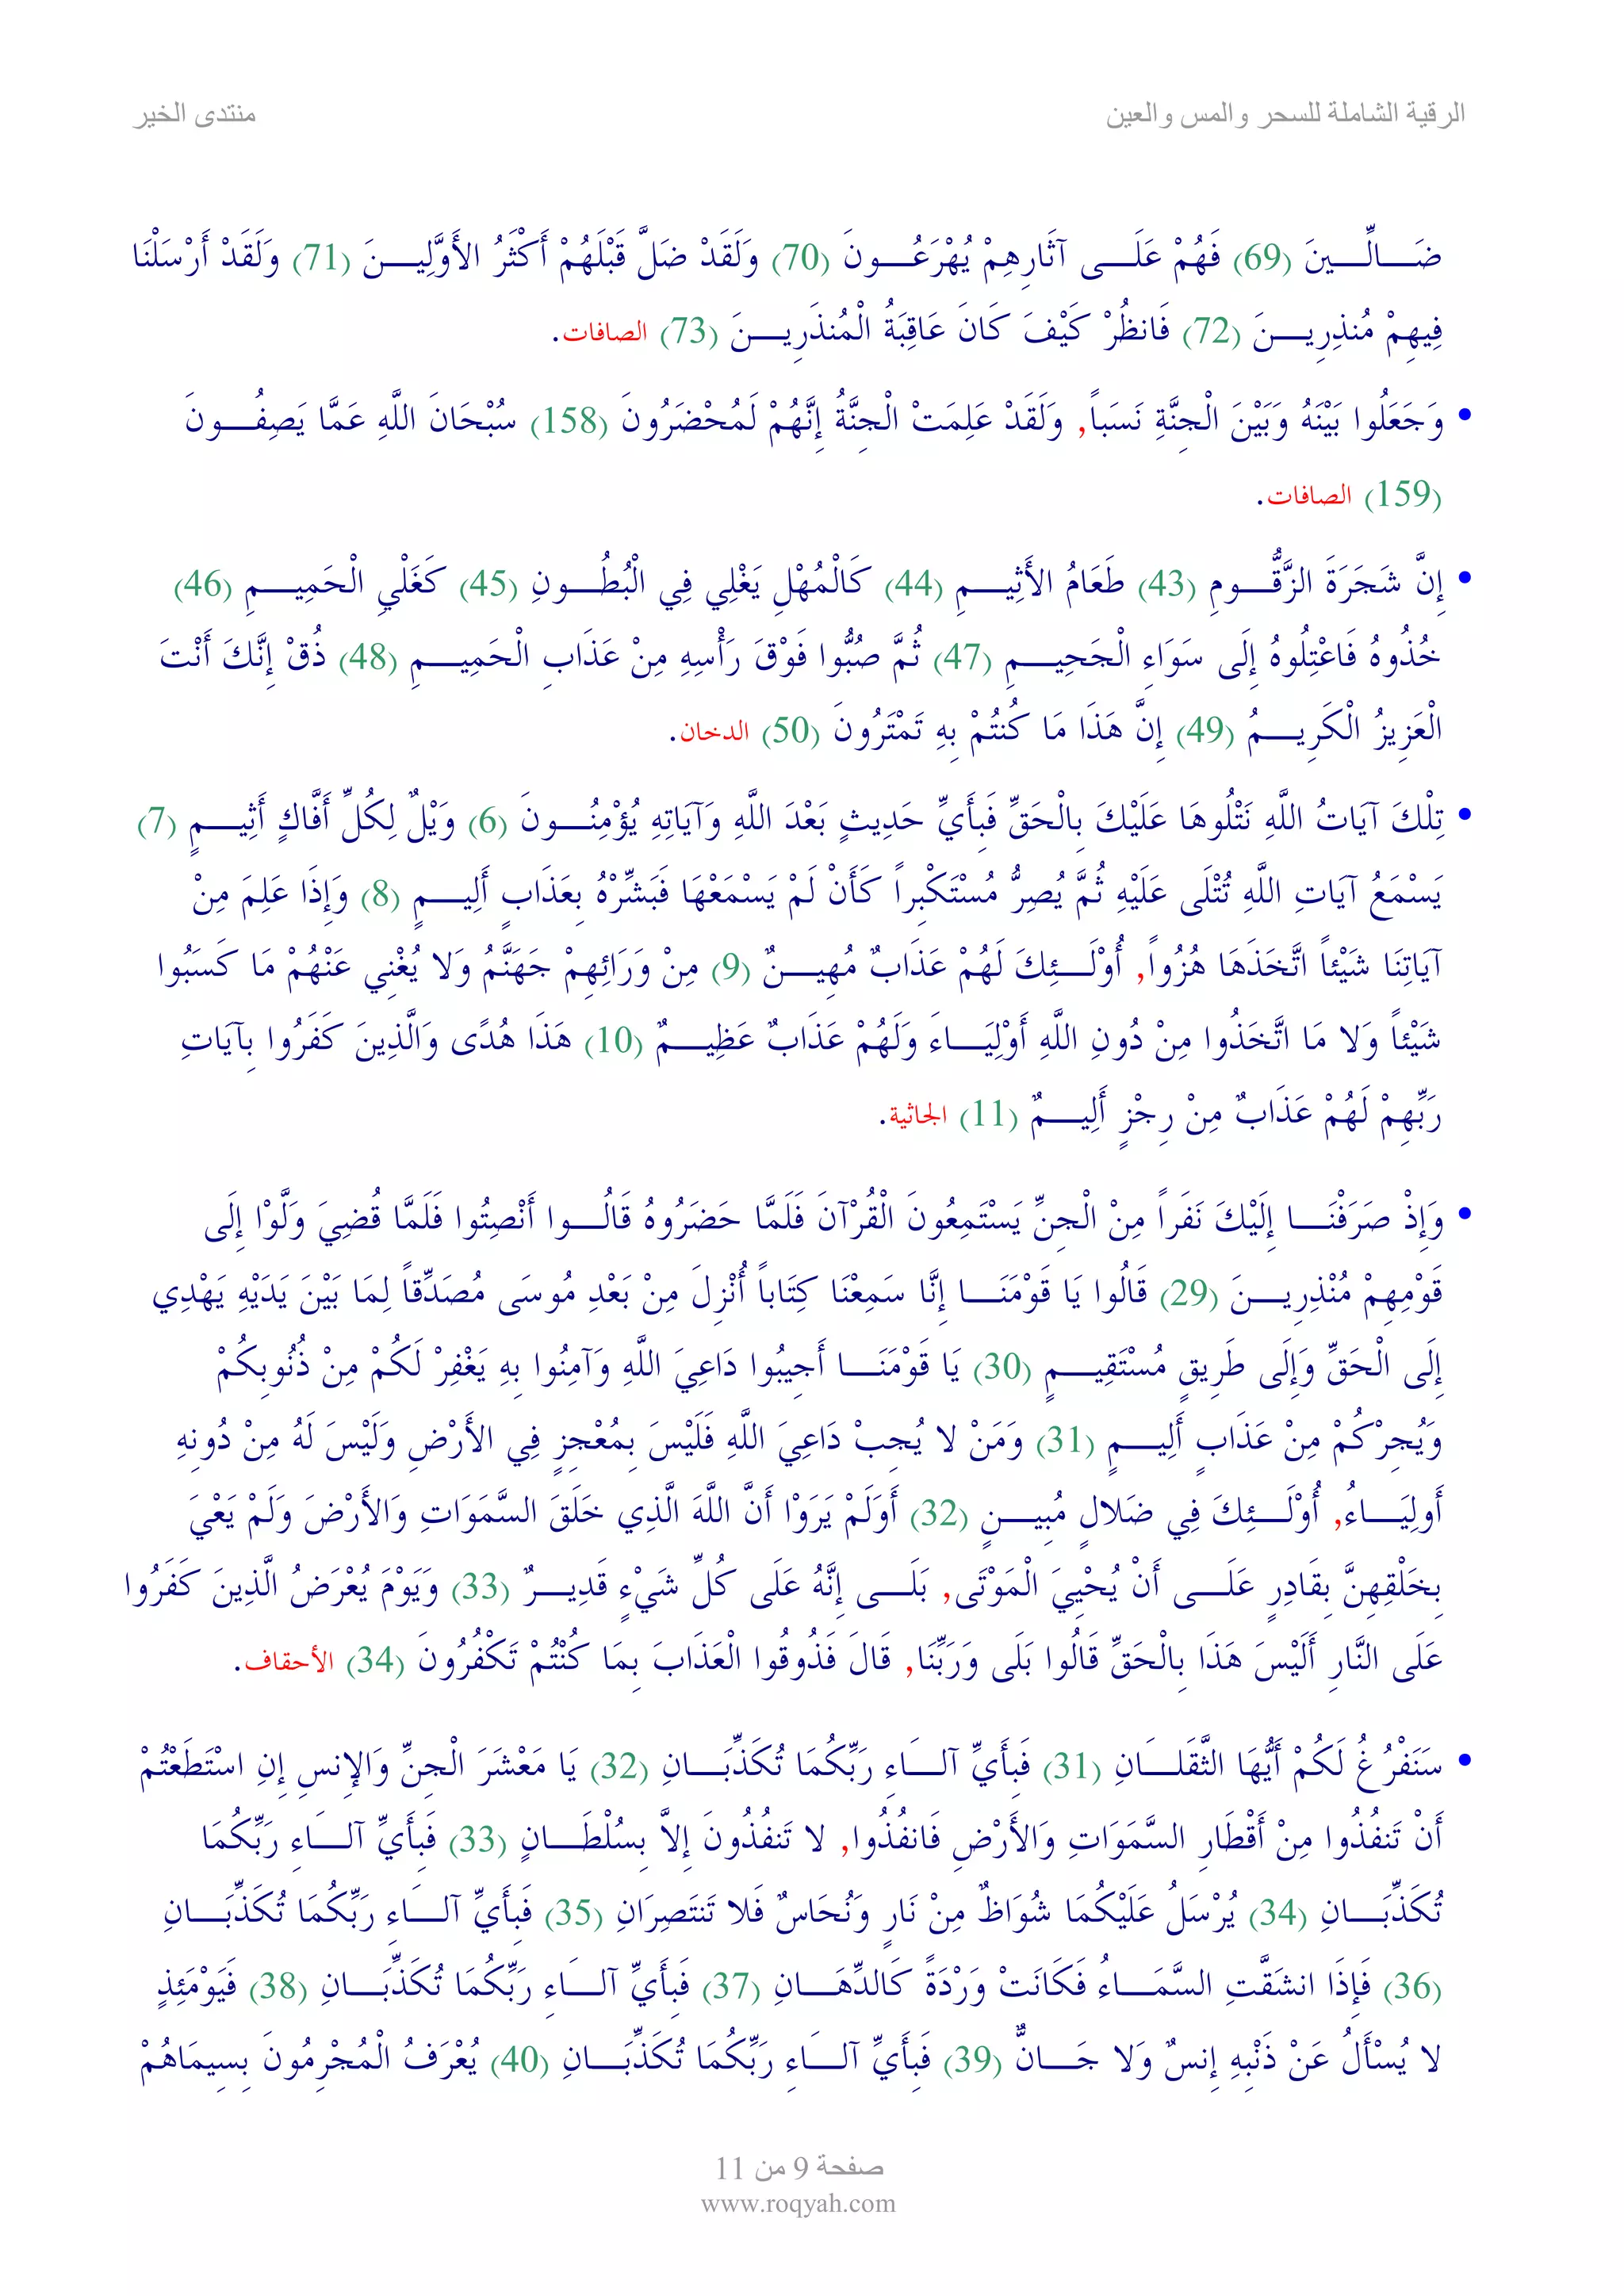 الرقية الشاملة للسحر والمس والعين
منتدى الخير
ضَـــالِّـــينَ (69) فَهُمْ عَلَـــى آثَارِهِمْ يُهْرَعُـــونَ (70) وَلَقَدْ ضَلَّ قَبْلَهُمْ أَكْثَرُ الأَوَّلِيـــنَ (71) وَلَقَدْ أَرْسَلْنَا
فِيهِمْ مُنذِرِيـــنَ (72) فَانظُرْ كَيْفَ كَانَ عَاقِبَةُ الْمُنذَرِيـــنَ (73) الصافات.
• وَجَعَلُوا بَيْنَهُ وَبَيْنَ الْجِنَّةِ نَسَباً, وَلَقَدْ عَلِمَتْ الْجِنَّةُ إِنَّهُمْ لَمُحْضَرُونَ (158) سُبْحَانَ اللَّهِ عَمَّا يَصِفُـــونَ
(159) الصافات.
• إِنَّ شَجَرَةَ الزَّقُّـــومِ (43) طَعَامُ الأَثِيـــمِ (44) كَالْمُهْلِ يَغْلِي فِي الْبُطُـــونِ (45) كَغَلْيِ الْحَمِيـــمِ (46)
خُذُوهُ فَاعْتِلُوهُ إِلَى سَوَاءِ الْجَحِيـــمِ (47) ثُمَّ صُبُّوا فَوْقَ رَأْسِهِ مِنْ عَذَابِ الْحَمِيـــمِ (48) ذُقْ إِنَّكَ أَنْتَ
الْعَزِيزُ الْكَرِيـــمُ (49) إِنَّ هَذَا مَا كُنتُمْ بِهِ تَمْتَرُونَ (50) الدخان.
• تِلْكَ آيَاتُ اللَّهِ نَتْلُوهَا عَلَيْكَ بِالْحَقِّ فَبِأَيِّ حَدِيثٍ بَعْدَ اللَّهِ وَآيَاتِهِ يُؤْمِنُـــونَ (6) وَيْلٌ لِكُلِّ أَفَّاكٍ أَثِيـــمٍ (7)
يَسْمَعُ آيَاتِ اللَّهِ تُتْلَى عَلَيْهِ ثُمَّ يُصِرُّ مُسْتَكْبِراً كَأَنْ لَمْ يَسْمَعْهَا فَبَشِّرْهُ بِعَذَابٍ أَلِيـــمٍ (8) وَإِذَا عَلِمَ مِنْ
آيَاتِنَا شَيْئاً اتَّخَذَهَا هُزُواً, أُوْلَـــئِكَ لَهُمْ عَذَابٌ مُهِيـــنٌ (9) مِنْ وَرَائِهِمْ جَهَنَّمُ وَلا يُغْنِي عَنْهُمْ مَا كَسَبُوا
شَيْئاً وَلا مَا اتَّخَذُوا مِنْ دُونِ اللَّهِ أَوْلِيَـــاءَ وَلَهُمْ عَذَابٌ عَظِيـــمٌ (10) هَذَا هُدًى وَالَّذِينَ كَفَرُوا بِآيَاتِ
رَبِّهِمْ لَهُمْ عَذَابٌ مِنْ رِجْزٍ أَلِيـــمٌ (11) الجاثية.
• وَإِذْ صَرَفْنَـــا إِلَيْكَ نَفَراً مِنْ الْجِنِّ يَسْتَمِعُونَ الْقُرْآنَ فَلَمَّا حَضَرُوهُ قَالُـــوا أَنْصِتُوا فَلَمَّا قُضِيَ وَلَّوْا إِلَى
قَوْمِهِمْ مُنْذِرِيـــنَ (29) قَالُوا يَا قَوْمَنَـــا إِنَّا سَمِعْنَا كِتَاباً أُنْزِلَ مِنْ بَعْدِ مُوسَى مُصَدِّقاً لِمَا بَيْنَ يَدَيْهِ يَهْدِي
إِلَى الْحَقِّ وَإِلَى طَرِيقٍ مُسْتَقِيـــمٍ (30) يَا قَوْمَنَـــا أَجِيبُوا دَاعِيَ اللَّهِ وَآمِنُوا بِهِ يَغْفِرْ لَكُمْ مِنْ ذُنُوبِكُمْ
وَيُجِرْكُمْ مِنْ عَذَابٍ أَلِيـــمٍ (31) وَمَنْ لا يُجِبْ دَاعِيَ اللَّهِ فَلَيْسَ بِمُعْجِزٍ فِي الأَرْضِ وَلَيْسَ لَهُ مِنْ دُونِهِ
أَولِيَـــاءُ, أُوْلَـــئِكَ فِي ضَلالٍ مُبِيـــنٍ (32) أَوَلَمْ يَرَوْا أَنَّ اللَّهَ الَّذِي خَلَقَ السَّمَوَاتِ وَالأَرْضَ وَلَمْ يَعْيَ
بِخَلْقِهِنَّ بِقَادِرٍ عَلَـــى أَنْ يُحْيِيَ الْمَوْتَى, بَلَـــى إِنَّهُ عَلَى كُلِّ شَيْءٍ قَدِيـــرٌ (33) وَيَوْمَ يُعْرَضُ الَّذِينَ كَفَرُوا
عَلَى النَّارِ أَلَيْسَ هَذَا بِالْحَقِّ قَالُوا بَلَى وَرَبِّنَا, قَالَ فَذُوقُوا الْعَذَابَ بِمَا كُنْتُمْ تَكْفُرُونَ (34) الأحقاف.
• سَنَفْرُغُ لَكُمْ أَيُّهَا الثَّقَلَـــانِ (31) فَبِأَيِّ آلـــَاءِ رَبِّكُمَا تُكَذِّبَـــانِ (32) يَا مَعْشَرَ الْجِنِّ وَالإِنسِ إِنِ اسْتَطَعْتُمْ
أَنْ تَنفُذُوا مِنْ أَقْطَارِ السَّمَوَاتِ وَالأَرْضِ فَانفُذُوا, لا تَنفُذُونَ إِلاَّ بِسُلْطَـــانٍ (33) فَبِأَيِّ آلـــَاءِ رَبِّكُمَا
تُكَذِّبَـــانِ (34) يُرْسَلُ عَلَيْكُمَا شُوَاظٌ مِنْ نَارٍ وَنُحَاسٌ فَلا تَنتَصِرَانِ (35) فَبِأَيِّ آلـــَاءِ رَبِّكُمَا تُكَذِّبَـــانِ
(36) فَإِذَا انشَقَّتِ السَّمَـــاءُ فَكَانَتْ وَرْدَةً كَالدِّهَـــانِ (37) فَبِأَيِّ آلـــَاءِ رَبِّكُمَا تُكَذِّبَـــانِ (38) فَيَوْمَئِذٍ
لا يُسْأَلُ عَنْ ذَنْبِهِ إِنسٌ وَلا جَـــانٌّ (39) فَبِأَيِّ آلـــَاءِ رَبِّكُمَا تُكَذِّبَـــانِ (40) يُعْرَفُ الْمُجْرِمُونَ بِسِيمَاهُمْ
صفحة 9 من 11
www.roqyah.com